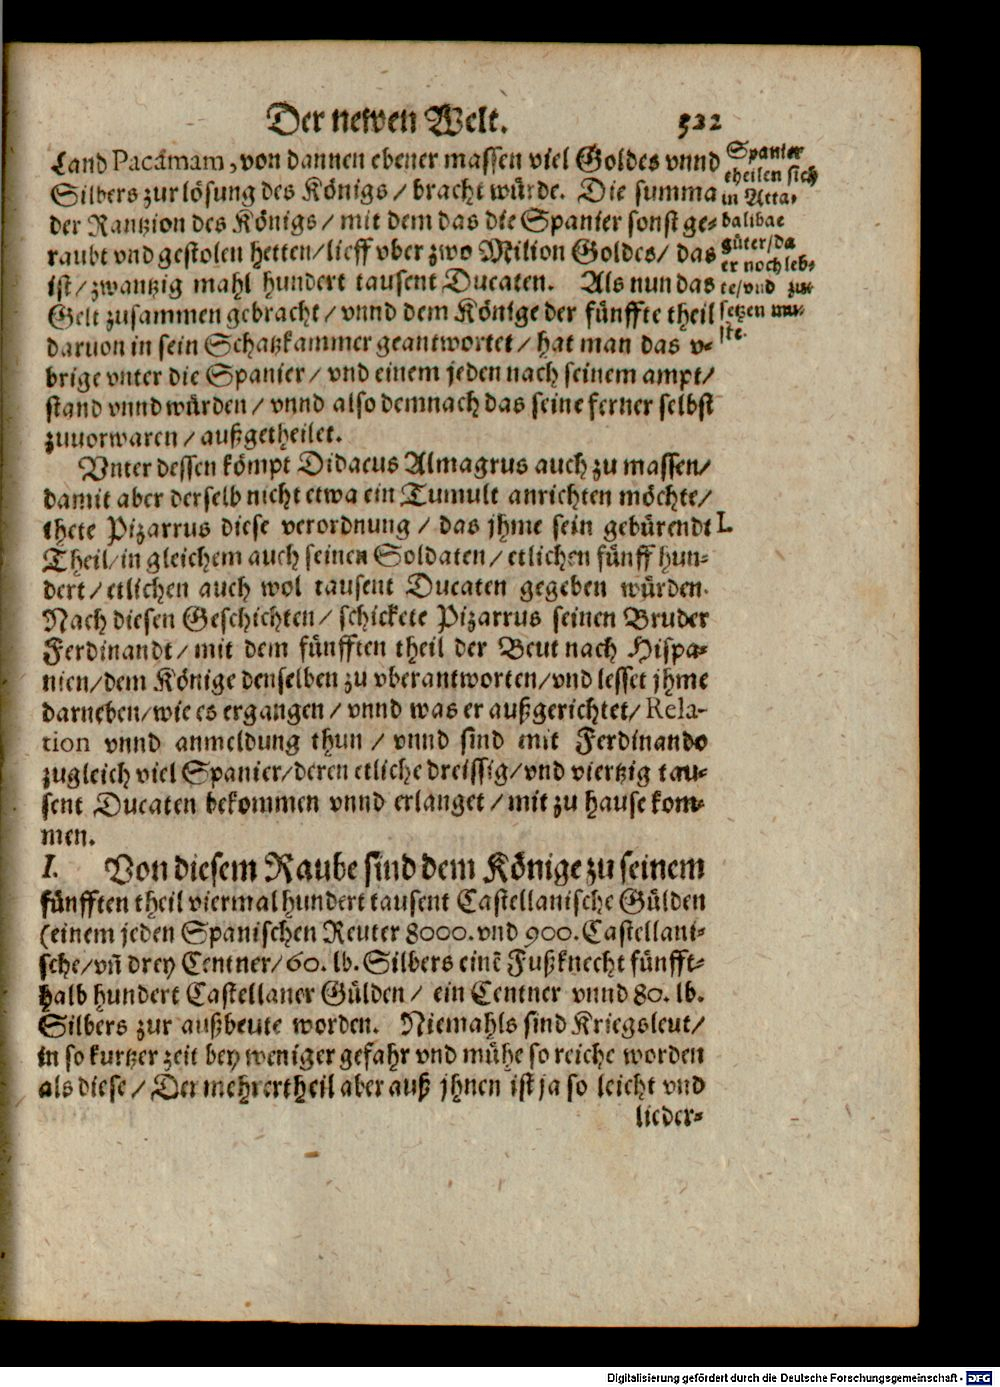 Der newen Welt. 522
Land Pacamam, von dannen ebener massen viel Goldes vnnd
Silbers zur lösung des Königs / bracht würde. Die summa
der Rantzion des Königs / mit dem das die Spanier sonst ge-
raubt vnd gestolen hetten / lieff vber zwo Milion Goldes / das
ist / zwantzig mahl hundert tausent Ducaten. Als nun das
Gelt zusammen gebracht / vnnd dem Könige der fünffte theil
daruon in sein Schatzkammer geantwortet / hat man das v-
brige vnter die Spanier / vnd einem jeden nach seinem ampt /
stand vnnd würden / vnnd also demnach das seine ferner selbst
zuuorwaren / außgetheilet.
Spanier
theilen sich
in Atta-
balibae
güter / da
er noch leb-
te / vnd zu
setzen mu-
ste.
Vnter dessen kömpt Didacus Almagrus auch zu massen /
damit aber derselb nicht etwa ein Tumult anrichten möchte /
thete Pizarrus diese verordnung / das jhme sein gebürendt I.
Theil / in gleichem auch seinen Soldaten / etlichen fünff hun-
dert / etlichen auch wol tausent Ducaten gegeben würden.
Nach diesen Geschichten / schickete Pizarrus seinen Bruder
Ferdinandt / mit dem fünfften theil der Beut nach Hispa-
nien / dem Könige denselben zu vberantworten / vnd lesset jhme
darneben / wie es ergangen / vnnd was er außgerichtet / Rela-
tion vnnd anmeldung thun / vnnd sind mit Ferdinando
zugleich viel Spanier / deren etliche dreissig / vnd viertzig tau-
sent Ducaten bekommen vnnd erlanget / mit zu hause kom-
men.
I. Von diesem Raube sind dem Könige zu seinem
fünfften theil viermal hundert tausent Castellanische Gülden
(einem jeden Spanischen Reuter 8000. vnd 900. Castellani-
sche / vñ drey Centner / 60. lb. Silbers einē Fußknecht fünfft-
halb hundert Castellaner Gülden / ein Centner vnnd 80. lb.
Silbers zur außbeute worden. Niemahls sind Kriegsleut /
in so kurtzer zeit bey weniger gefahr vnd mühe so reiche worden
als diese / Der mehrertheil aber auß jhnen ist ja so leicht vnd
lieder-
Digitalisierung gefördert durch die Deutsche Forschungsgemeinschaft - DFG